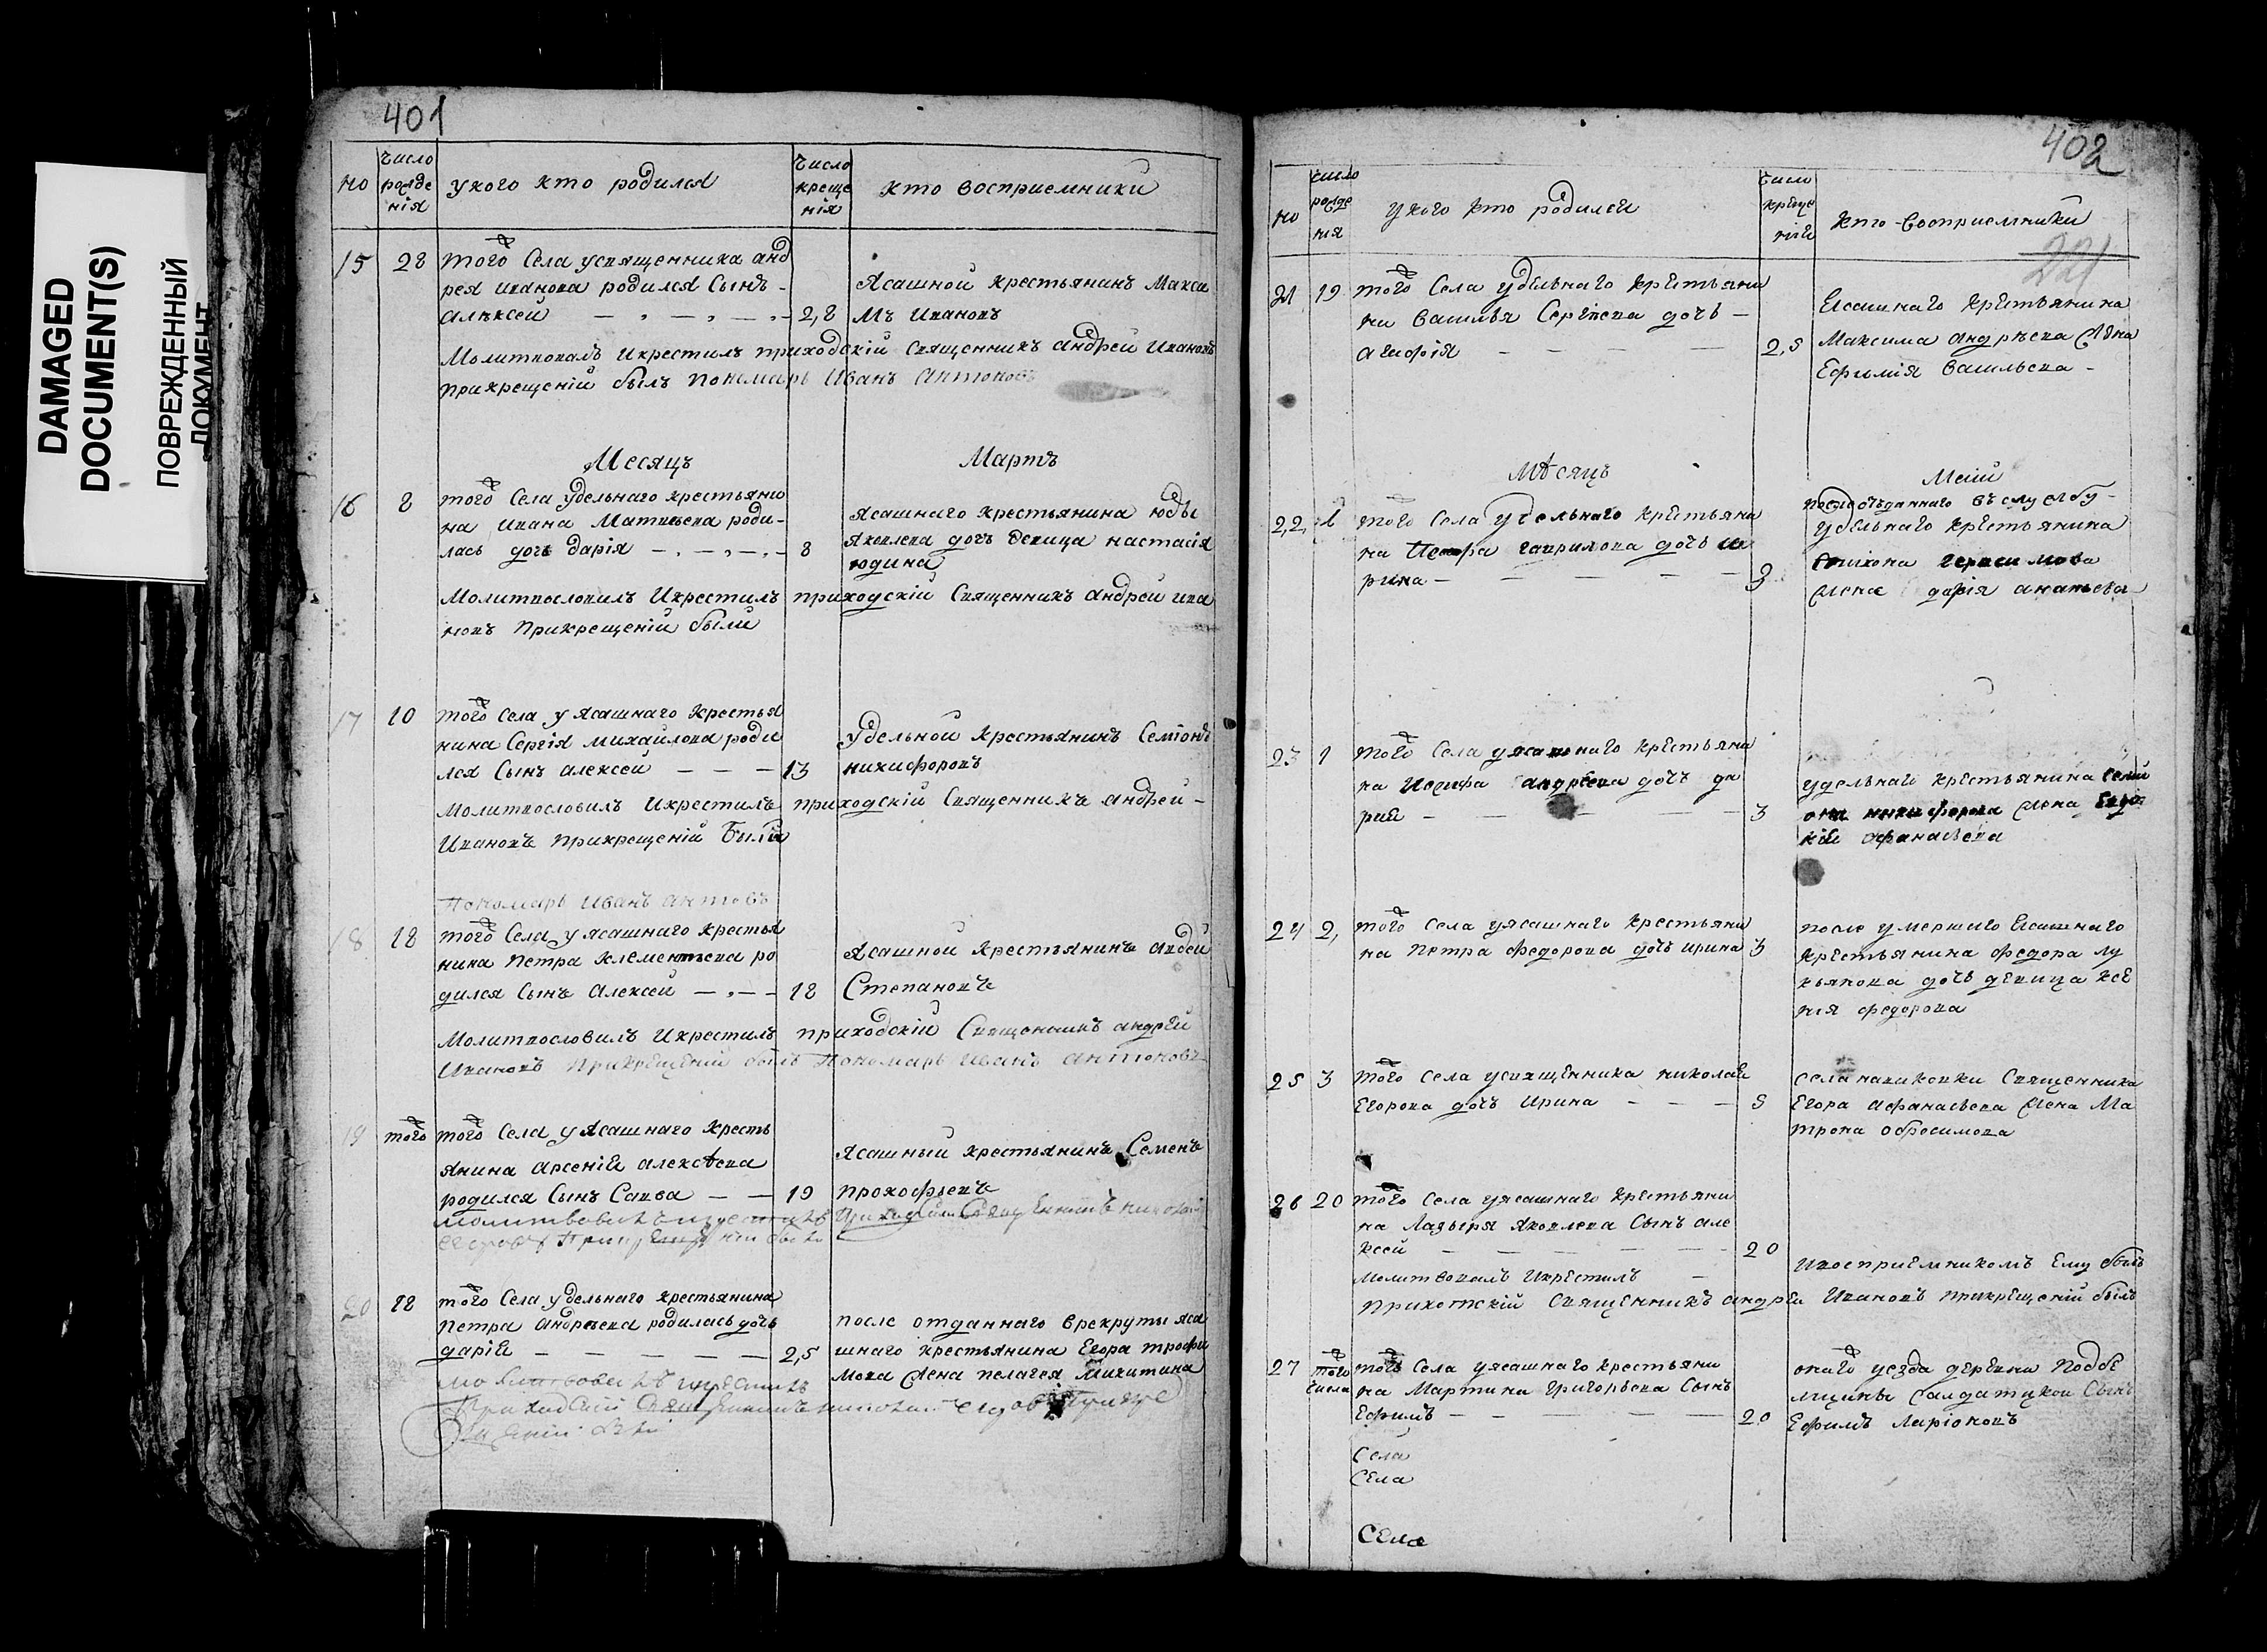 DAMAGED
DOCUMENT(S)
ПОВРЕЖДЕННЫЙ
ДОКУМЕНТ
401
но
число рожде нiя
укого кто родился
число креще нiя
кто восприемники
15 28 тогожъ Села усвященника анд
рея иванова родился Сынъ -
алѣксей — 2,8
Ясашной крестьянинъ Макси
мъ Ивановъ
Молитвовалъ Икрестилъ приходскiй Священникъ андрей Ивановъ
прикрещенiй былъ пономарь Иванъ Антоновъ
Месяцъ Мартъ
16 8 тогожъ Села удельнаго крестьяни
на Ивана Матвѣева роди-
лась дочь дарiя — 8
Ясашнаго крестьянина юды
Яковлева дочь девица настасiя
юдина
Молитвословилъ Икрестилъ приходскiй Священникъ андрей ива
новъ Прикрещенiй были
17 10 тогожъ села у ясашнаго крестья
нина Сергiя михайлова роди
лся Сынъ алексей — — — 13
Удельной крестьянинъ Семiонъ
никифоровъ
Молитвословилъ Икрестилъ приходскiй Священникъ андрей -
Ивановъ прикрещенiй были
Пономарь Иванъ антовъ
18 18 тогожъ Села у ясашнаго крестья
нина Петра Клементьева ро
дился Сынъ Алексей — 18
Ясашной крестьянинъ авдей
Степановъ
Молитвословилъ Икрестилъ приходскiй Священникъ андрей
Ивановъ Прикрещенiй былъ Пономарь Иванъ антоновъ
19 тогожъ тогожъ Села у Ясашнаго кресть
янина арсенiя алексѣева
родился Сынъ Савва — — 19
Ясашный крестьянинъ Семенъ
прокофьевъ
20 18 тогожъ Села удельнаго крестьянина
Петра андрѣева родилась дочь
дарiя — — — — — 2,5
после отданнаго врекруты яса
шнаго крестьянина Егора трофи
мова жена пелагея Микитина
402
но
число рожде нiя
укого кто родился
число креще нiя
кто восприемники
221
21 19 тогожъ Села удѣльнаго крѣстьяни
на василья Сергѣева дочь —
агафiя — — — — 2,5
Есашнаго крѣстьянина
Максима андрѣева жена
Ефимiя васильева -
Мѣсяцъ Маiй
22 1 тогожъ Села удельнаго крѣстьяни
на гаврилова дочь и
рина — — — — 3
удѣльнаго крѣстьянина
герасимова
жена дарiя ананьева
23 1 тогожъ Села уясашнаго крѣстьяни
на Иосифа андрѣева дочь да
рия — — — 3
удельнаго крѣстьянина семи
она никифорова жена Евдо
кiя афанасьева
24 2, тогожъ Села уясашнаго крестьяни
на петра федорова дочь ирина 3
после умершаго Есашнаго
крѣстьянина федора лу
кьянова дочь девица ксе
ния федорова
25 3 тогожъ Села усвященника николая
Егорова дочь Ирина — — — 5
села навиковки Священника
Егора афанасьева жена Ма
трона обросимова
26 20 тогожъ Села уясашнаго крѣстьяни
на Лазыря Яковлева Сынъ але
ксей — — — — 20
Ивосприемникомъ Ему былъ
Молитвовалъ Икрестилъ —
прихотскiй Священникъ андрей Ивановъ прикрещенiй былъ
27 тогожъ числа тогожъ Села уясашнаго крестьяни
на Мартина Григорьева Сынъ
Ефимъ — — — — 20
онагожъ уезда деревни Поддѣ
Салдатцкой Сынъ
Ефимъ Ларiоновъ
Села
Села
Села